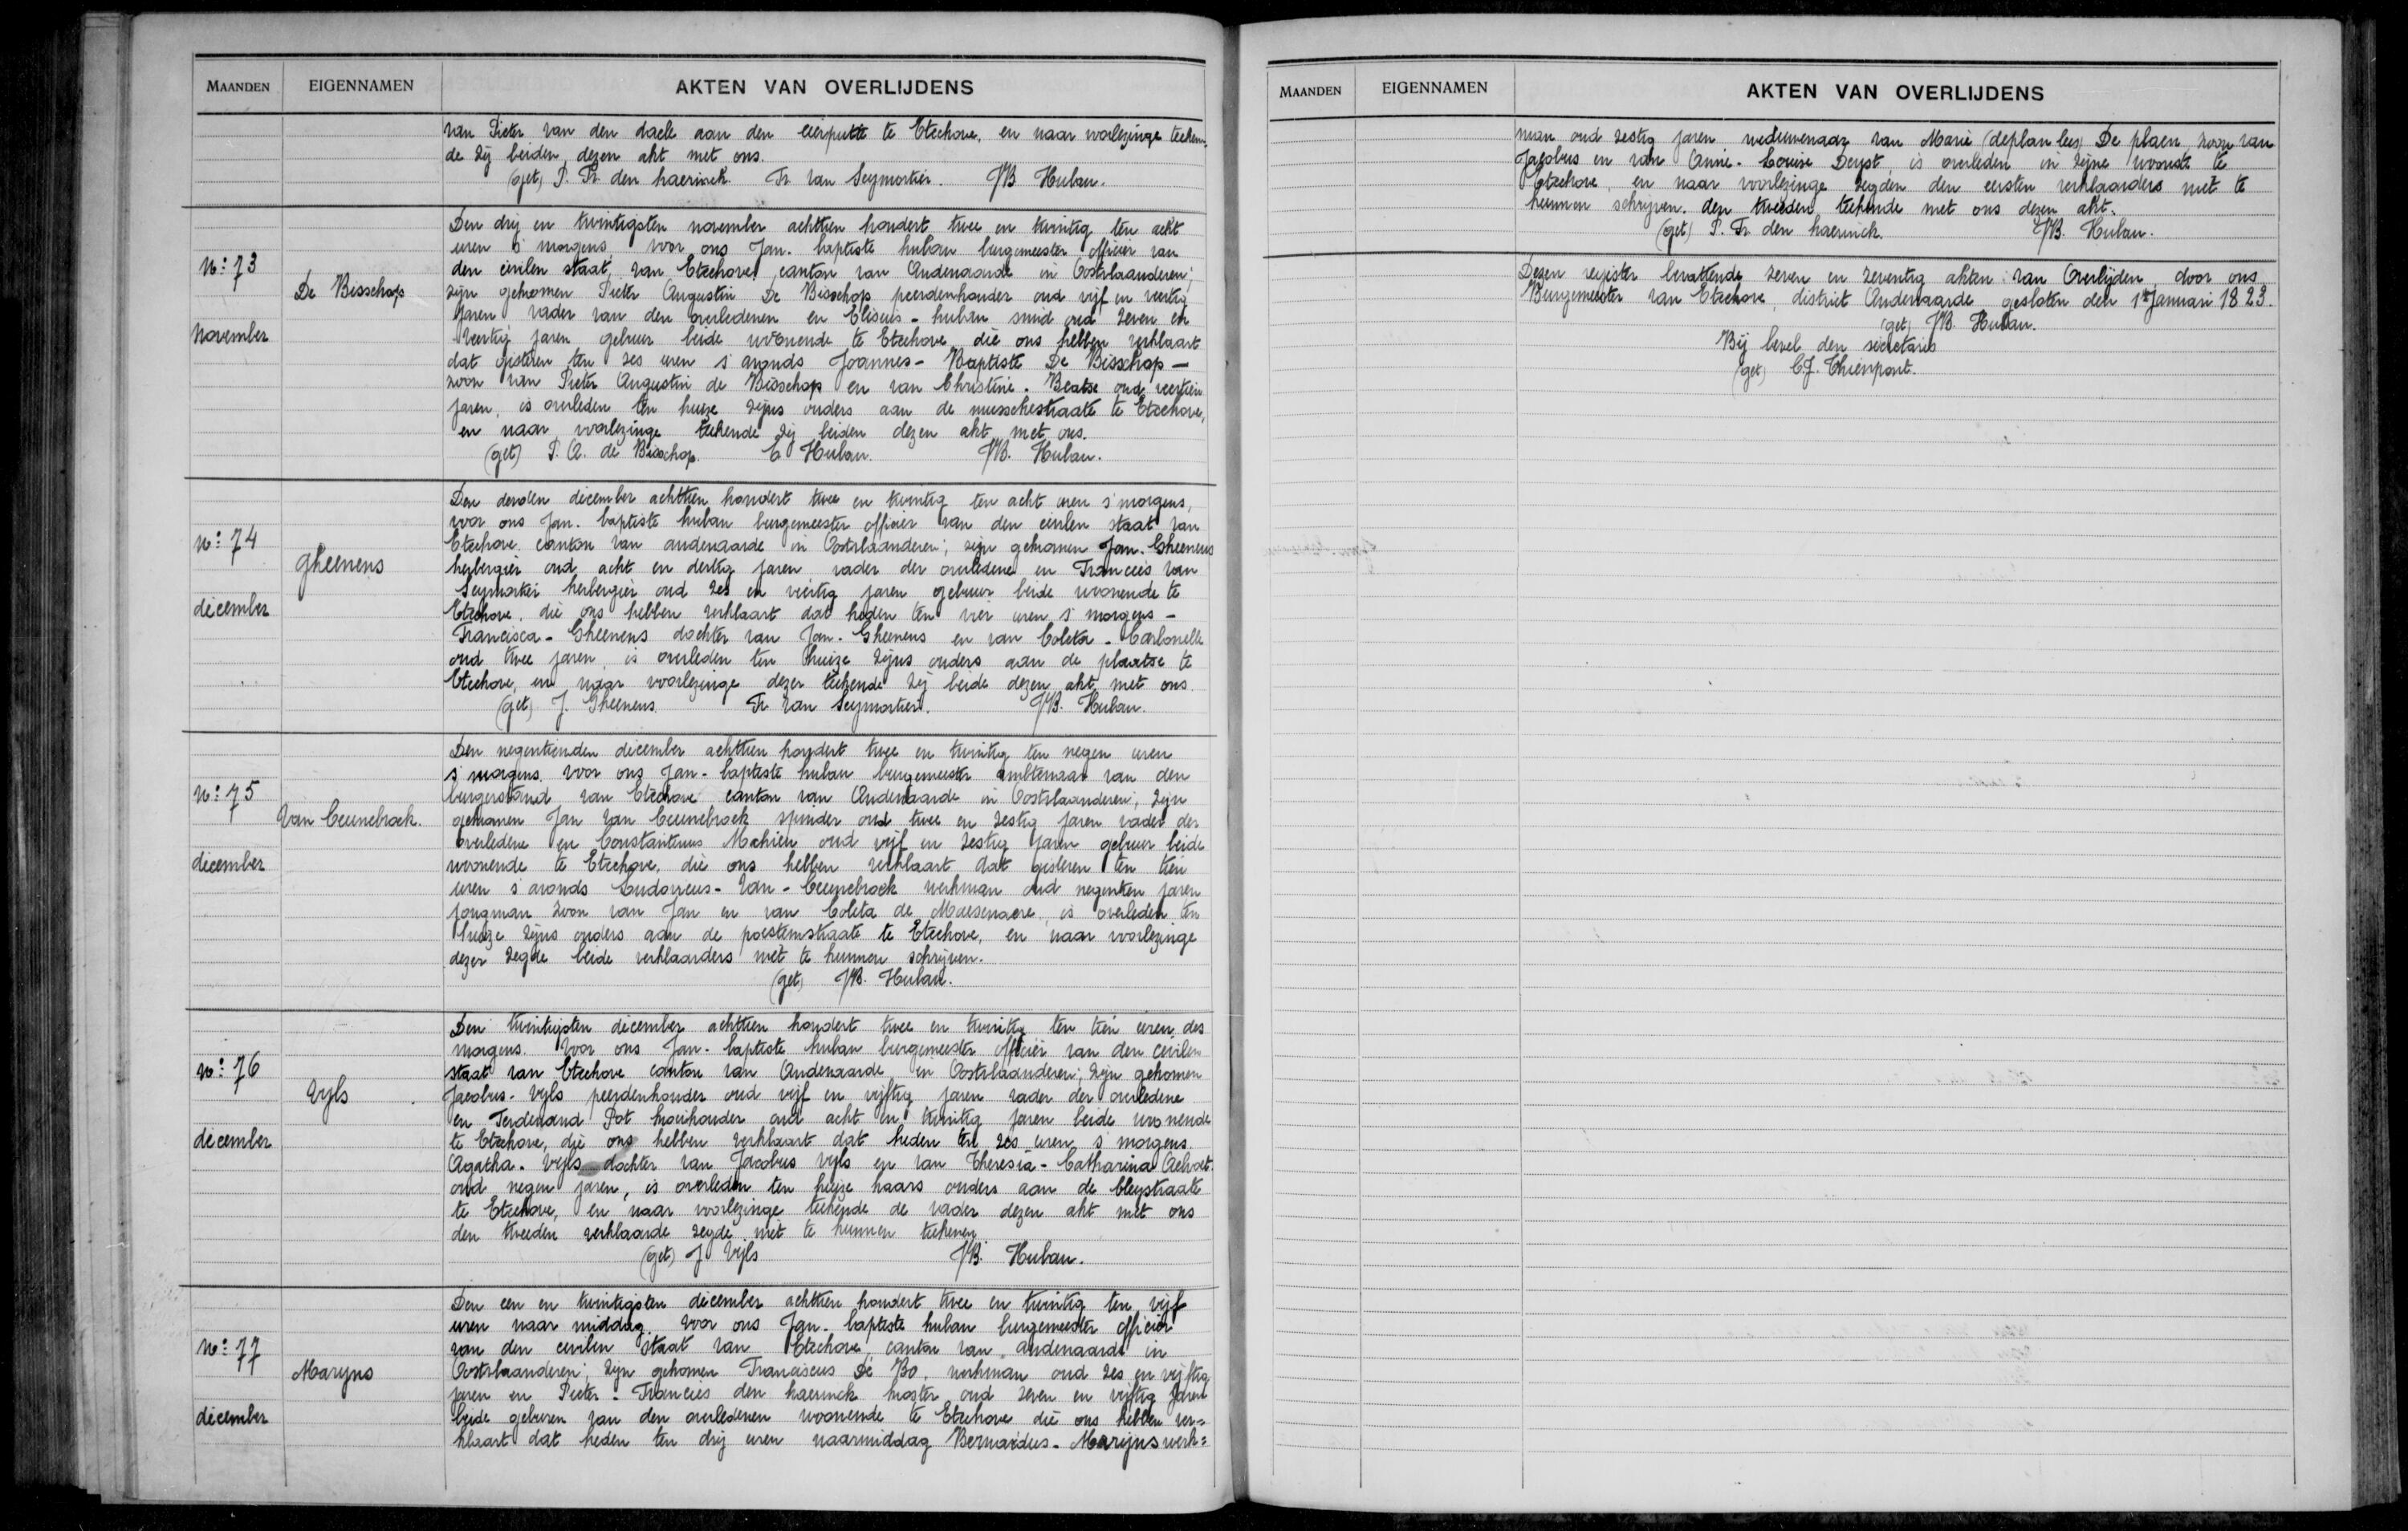 MAANDEN EIGENNAMEN AKTEN VAN OVERLIJDENS
van Pieter van den daele aan den eierputte te Etichove, en naar voorlezinge teeken-
de zij beiden dezen akt met ons.
(get) P. Fr. den haerinck. Fr. Van Seymortier. JB Hubau.
N:º 73
November
De Bisschop
Den drij en twintigsten november achttien hondert twee en twintig ten acht
uren s' morgens voor ons Jan-baptiste hubau burgemeester officier van
den civilen staat van Etichove canton van Audenaarde in Oostvlaanderen;
zijn gekomen Pieter Augustin De Bisschop peerdenhouder oud vijf en veertig
jaren vader van den overledenen en Eliseus-hubau smid oud zeven en
veertig jaren gebuur beide woenende te Etichove die ons hebben verklaart
dat gisteren ten zes uren s' avonds Joannes-Baptiste De Bisschop -
zoon van Pieter Augustin de Bisschop en van Christine-Beatse oud veertien
jaren, is overleden ten huize zijns ouders aan de musschestraate te Etichove,
en naar voorlezinge teekende zij beiden dezen akt met ons.
(get) P. A. de Bisschop. E Hubau. JB. Hubau.
N:º 74
december
Gheenens
Den derden december achttien hondert twee en twintig ten acht uren s' morgens,
voor ons Jan-baptiste hubau burgemeester officier van den civilen staat van
Etichove canton van audenaarde in Oostvlaanderen; zijn gekomen Jan-Gheenens
herbergier oud acht en dertig jaren vader der overledene en Francies van
Seymortier herbergier oud zes en viertig jaren gebuur beide woonende te
Etichove, die ons hebben verklaart dat heden ten vier uren s' morgens -
Francisca-Gheenens dochter van Jan-Gheenens en van Coleta-Carbonelle
oud twee jaren, is overleden ten huize zijns ouders aan de plaatse te
Etichove, en naar voorlezinge dezer teekende zij beide dezen akt met ons.
(get) J. Gheenens. Fr. Van Seymortier. JB. Hubau.
N:º 75
december
Van Ceunebroek.
Den negentienden december achttien hondert twee en twintig ten negen uren
s' morgens voor ons Jan-baptiste hubau burgemeester ambtenaar van den
burgerstand van Etichove canton van Audenaarde in Oostvlaanderen; zijn
gekomen Jan Van Ceunebroek spinder oud twee en zestig jaren vader der
overledene en Constantinus Machieu oud vijf en zestig jaren gebuur beide
woonende te Etichove, die ons hebben verklaart dat gisteren ten tien
uren s' avonds Ludovicus-Van-Ceunebroek werkman oud negentien jaren
jongman zoon van Jan en van Coleta de Maesenaere, is overleden ten
huize zijns ouders aan de poesteinstraate te Etichove, en naar voorlezinge
dezer zegde beide verklaarders niet te kunnen schrijven.
(get) JB. Hubau.
N:º 76
december
Vyls
Den twintigsten december achttien hondert twee en twintig ten tien uren des
morgens. Voor ons Jan-baptiste hubau burgemeester officier van den civilen
staat van Etichove canton van Audenaarde in Oostvlaanderen; zijn gekomen
Jacobus-Vyls peerdenhouder oud vijf en vijftig jaren vader der overledene
en Ferdenand Pot koeihouder oud acht en twintig jaren beide woonende
te Etichove, die ons hebben verklaart dat heden ten zes uren s' morgens
Agatha-Vyls dochter van Jacobus Vyls en van Theresia-Catharina Aelvoet
oud negen jaren, is overleden ten huize haars ouders aan de bleystraate
te Etichove, en naar voorlezinge teekende de vader dezen akt met ons
den tweeden verklaarde zegde niet te kunnen teekenen
(get) J Vyls JB. Hubau.
N:º 77
december
Maryns
Den een en twintigsten december achttien hondert twee en twintig ten vijf
uren naar middag. Voor ons Jan-baptiste hubau burgemeester officier
van den civilen staat van Etichove canton van audenaarde in
Oostvlaanderen; zijn gekomen Franciscus De Bo, werkman oud zes en vijftig
jaren en Pieter-Francies den haerinck koster oud zeven en vijftig jaren
beide geburen van den overledenen woonende te Etichove die ons hebben ver=
klaart dat heden ten drij uren naarmiddag Bernardus-Marijns werk=
MAANDEN EIGENNAMEN AKTEN VAN OVERLIJDENS
man oud zestig jaren weduwenaar van Marie (deplan lees) De plaen, zoon van
Jacobus en van Anne-Louise Deryst, is overleden in zijne woonste te
Etichove, en naar voorlezinge zegden den eersten verklaarders niet te
kunnen schrijven. den tweeden teekende met ons dezen akt.
(get) P. Fr. den haerinck. JB. Hubau.
Dezen register bevattende zeven en zeventig akten van Overlijden door ons
Burgemeester van Etichove district Audenaarde gesloten den 1n Januari 1823.
(get) JB. Hubau.
Bij bevel den secretaris
(get) C.J. Thienpont.